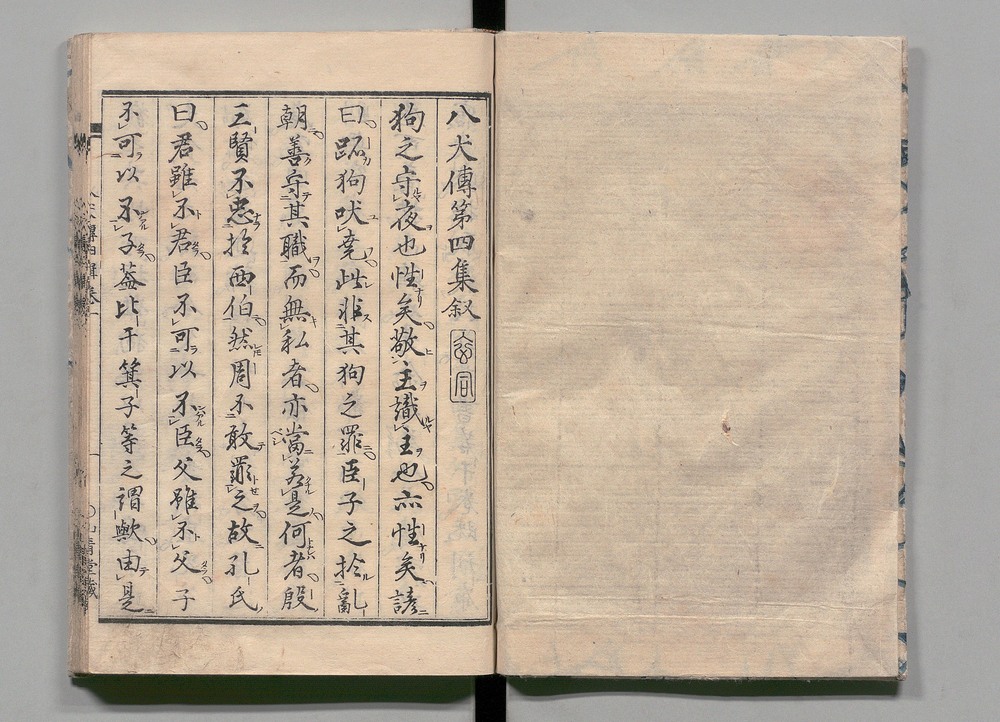 八犬傳第四集叙 玄同
狗之守夜也性矣敬主識主也亦性矣諺
曰跖狗吠堯此非其狗之罪臣子之於亂
朝善守其職而無私者亦當若是何者殷
三賢不忠於西伯然周不敢罪之故孔氏
曰君雖不君臣不可以不臣父雖不父子
不可以不子蓋比干箕子等之謂歟由是